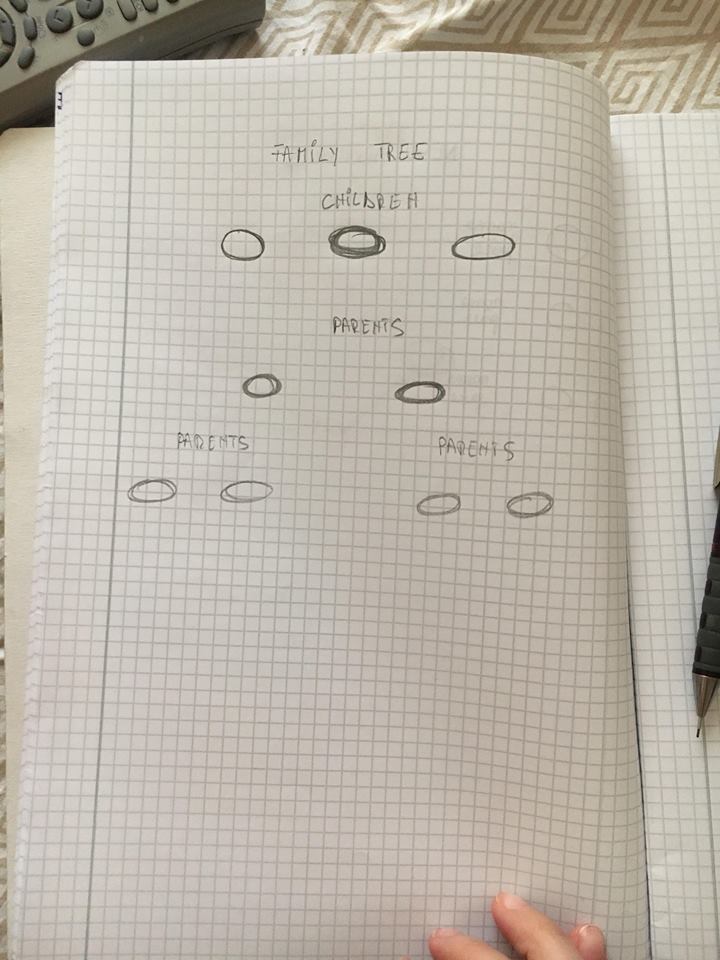 FAMILY TREE
CHILDREN
PARENTS
PARENTS PARENTS